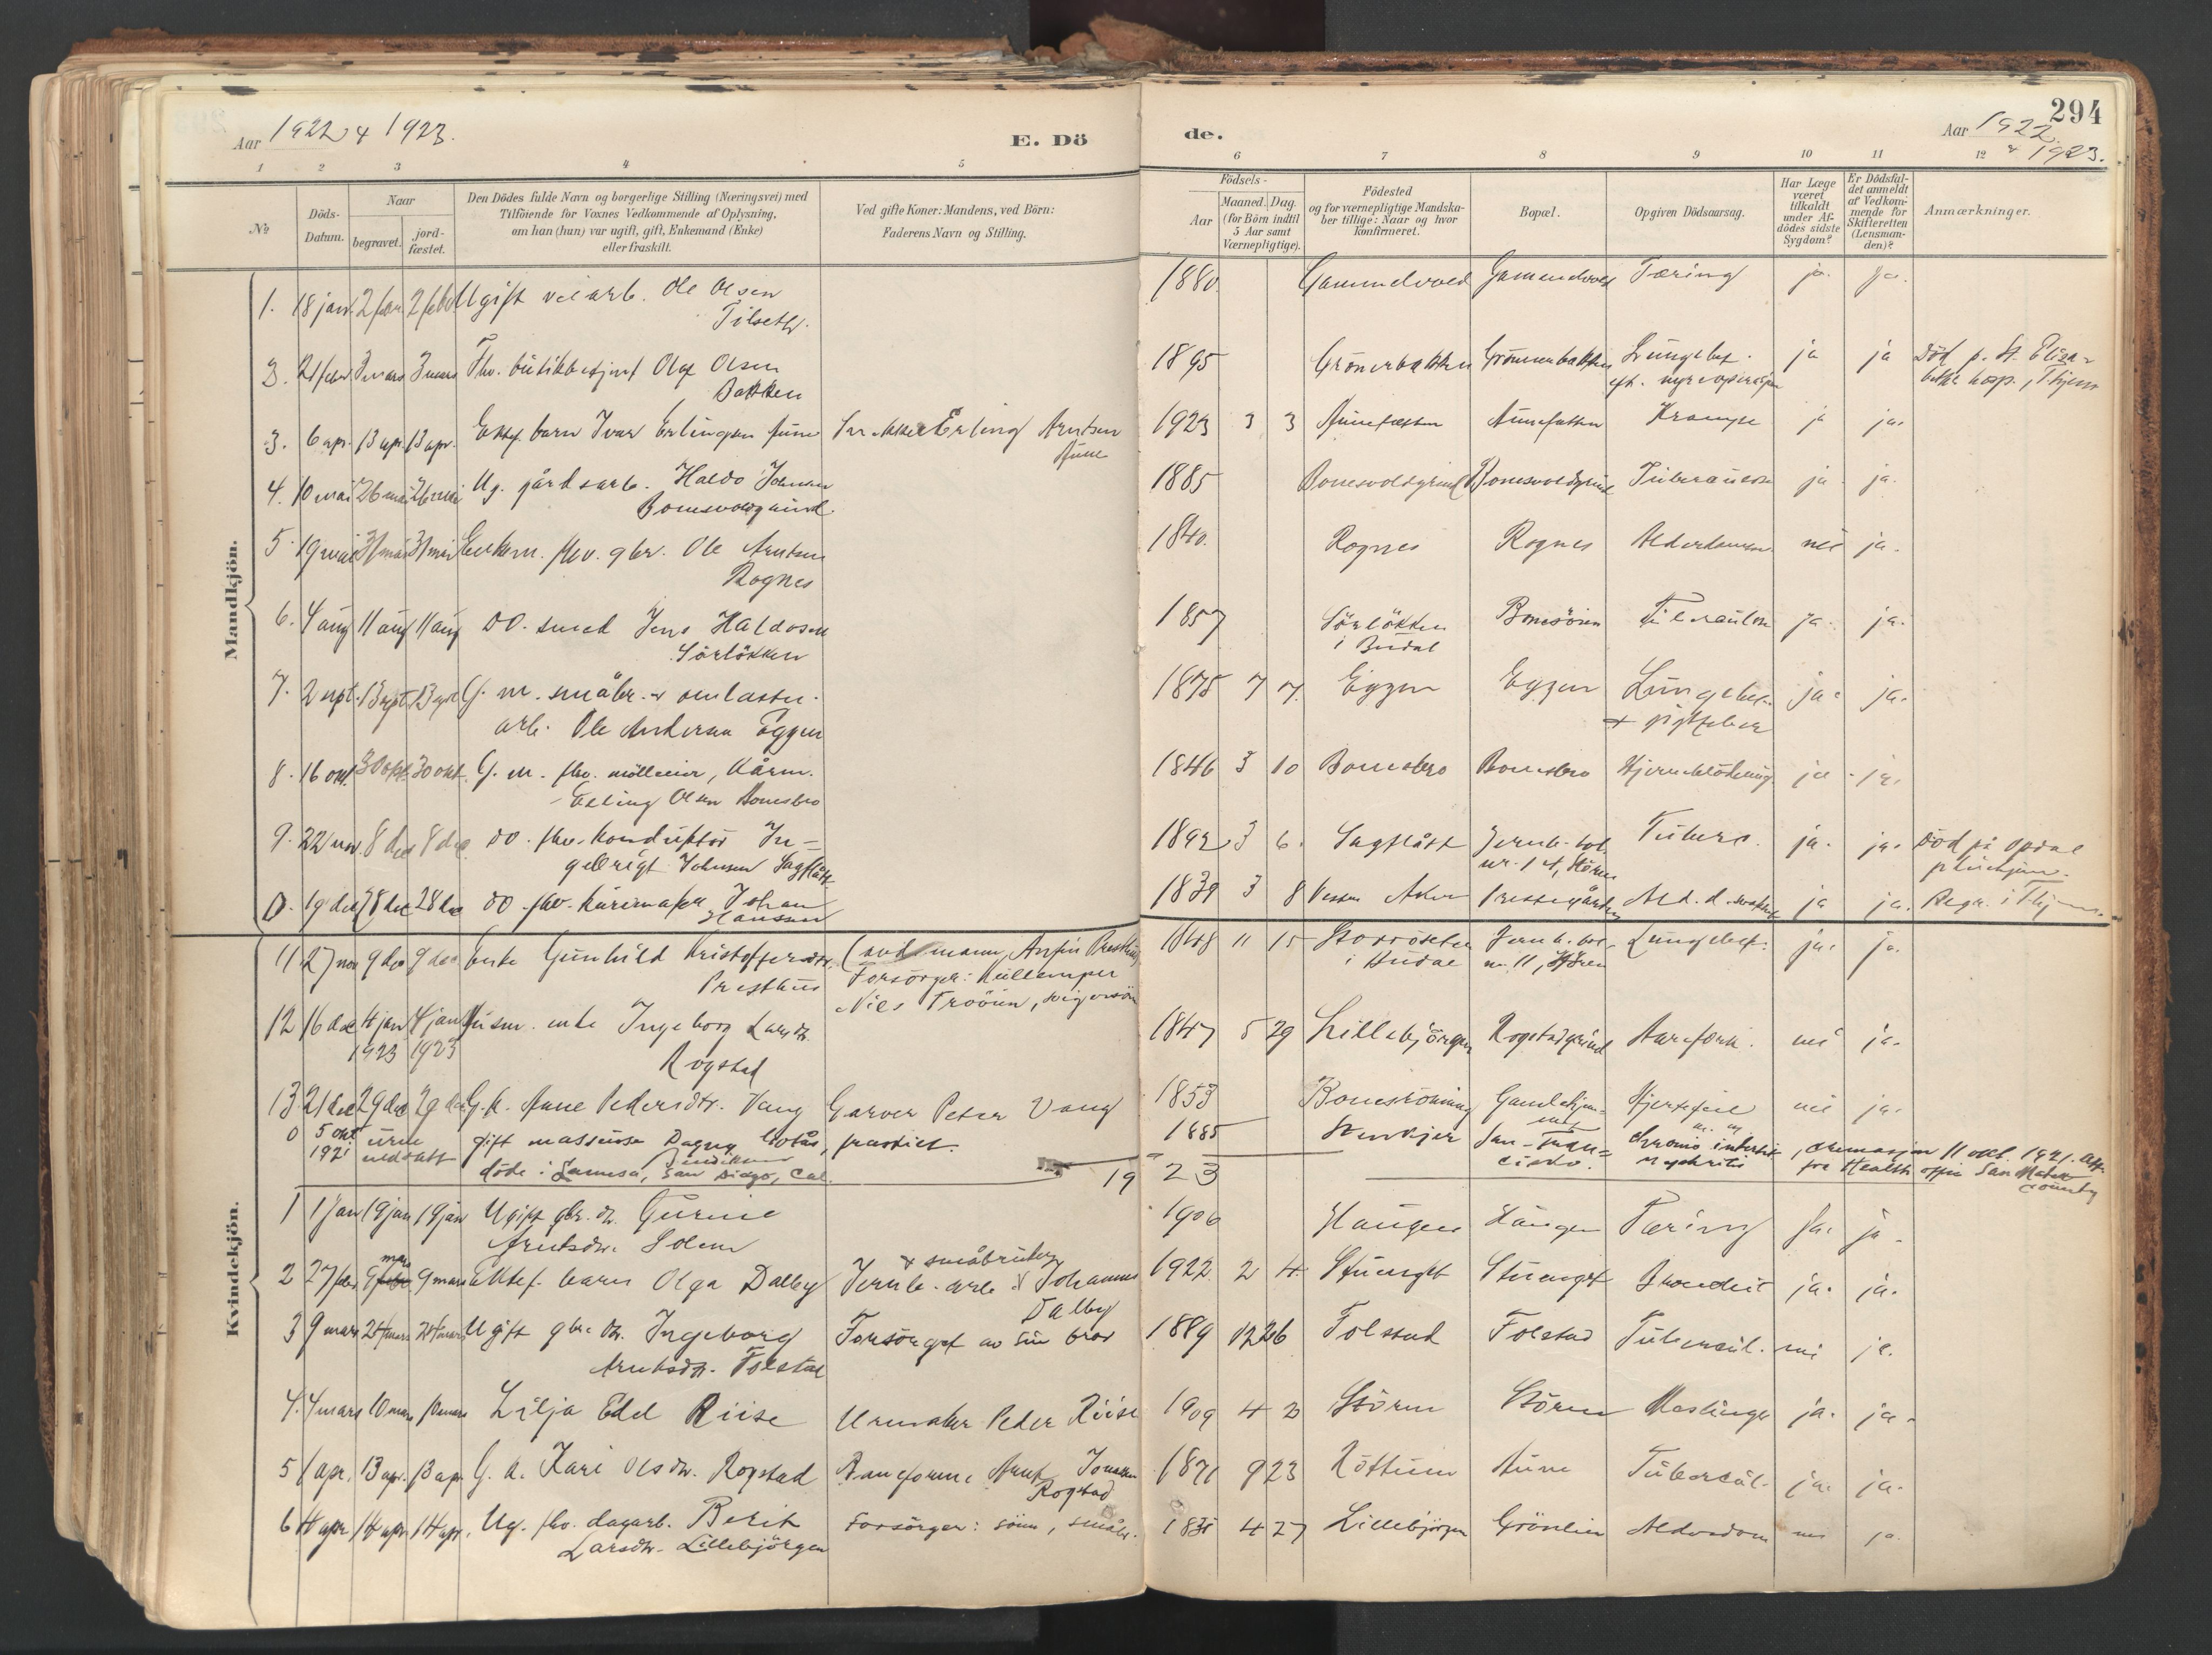 Aar 1922 & 1923.
E. Dö
de.
Aar 1922
& 1923.
294
1 2 3 4 5 6 7 8 9 10 11 12
No
Döds-
Datum.
Naar
begravet.
jord-
fæstet.
Den Dödes fulde Navn og borgerlige Stilling (Næringsvei) med
Tilföiende for Voxnes Vedkommende af Oplysning,
om han (hun) var ugift, gift, Enkemand (Enke)
eller fraskilt.
Ved gifte Koner: Mandens, ved Börn:
Faderens Navn og Stilling.
Födsels-
Aar
Maaned. Dag.
(for Börn indtil
5 Aar samt
Værnepligtige).
Födested
og for værnepligtige Mandska-
ber tillige: Naar og hvor
konfirmeret.
Bopæl.
Opgiven Dödsaarsag.
Har Læge
været
tilkaldt
under Af-
dödes sidste
Sygdom?
Er Dödsfal-
det anmeldt
af Vedkom-
mende for
Skifteretten
(Lensman-
den)?
Anmærkninger.
Mandkjön.
1. 18 jan. 2 febr. 2 febr. Ugift veiarb. Ole Olsen 1880. Tæring ja. ja.
Tilseth.
2. 21 febr. 3 mars 3 mars Fhv. butikkbetjent Olaf Olsen 1895 Grönnerbakken Grönnerbakken Lungebet. ja ja Död p. St. Eliza-
Bakken eft. nyreoperasjon beths hosp., Thjem
3. 6 apr. 13 apr. 13 apr. Ektef. barn Ivar Erlingsen Aune Erling Arntsen 1923 3 3 Krampe ja ja.
Aune
4. 10 mai 26 mai 26 mai Ug. gårdsarb. Haldo Johnsen 1885 Bonesvoldgrind Bonesvoldgrind Tuberculose ja ja.
Bonesvoldgrind.
5. 19 mai 31 mai 31 mai Enkem. fhv. gbr. Ole Arntsen 1840. Rognes Rognes Alderdomsv. nei ja.
Rognes
6. 4 aug 11 aug 11 aug DO. smed Jens Haldosen 1857 Sörlökken Bonesöien Tuberculose ja. ja.
Sörlökken i Budal
7. 2 sept. 13 sept. 13 sept G. m. småbr. & 1875 7 7. Eggen Eggen Lungebet. ja. ja.
arb. Ole Andersen Eggen & giktfeber
8. 16 okt. 30 okt. 30 okt. G. m. fhv. möller, 1846 3 10 Bonesbro Bonesbro Hjerneblödning ja. ja.
Erling Olsen Bonesbro
9. 22 nov. 8 dec 8 dec. DO. fhv. konduktör In- 1892 3 6. Sagflått Jernb.bol. Tuberc. ja. ja. Död på Opdal
gebrigt Johnsen Sagflått nr. 14, Stören pleiehjem.
0. 19 dec 28 dec 28 dec DO. fhv. Johan 1839 3 8 Vestre Aker Prestegården Ald. d. svakhet ja ja. Begr. i Thj
Hanssen
11. 27 nov 9 dec 9 dec Enke Gunhild Kristoffersdtr. mann, Anfin Presthus 1848 11 15 Storröseter Jernb. bol. Lungebet. ja. ja.
Presthus Forsörger: i Budal nr. 11, Stören
Nils Troöien, svigersön
12 16 dec 4 jan 4 jan Husm. enke Ingeborg Larsdtr. 1847 5 29 Lillebjörgen Rogstadgrind nei ja.
1923 1923 Rogstad
13 21 dec 29 dec 29 dec G. k. Anne Pedersdtr. Vang Garver Peter Vang 1853 Hjertefeil nei ja.
0 5 okt urne gift massöse Dagny 1885 Stenkjer San-Fran- chronic interstit. , cremasjon 11 okt. 1921. Att.
1921 nedsatt cisko. nephritis fra Health office San Mateo
döde i Lamesa, San Diego, Cal. County
1923
Kvindekjön.
1 1 jan 19 jan 19 jan Ugift gbr. dtr. Gurine 1906 Haugen Haugen Tæring ja. ja.
Arntsdtr. Solem
2 27 febr 9 mars 9 mars Ektef. barn Olga Dalby Jernb. arb. & småbruker Johannes 1922 2 4. ja. ja.
Dalby
3 9 mars 24 mars 24 mars Ugift gbr. dtr. Ingeborg Forsörget av sin bror 1889 12 26 Folstad Folstad Tubercul. nei ja.
Arntsdtr. Folstad
4. 4 mars 10 mars 10 mars Lilja Edel Riise Urmaker Peder Riise 1909 4 2 Stören Stören Meslinger ja. ja.
5 1 apr. 13 apr. 13 apr G. k. Kari Olsdtr. Rogstad Baneform. Arnt 1871 9 23 Röttum Aune Tubercul. ja. ja.
Rogstad
6 4 apr 14 apr 14 apr. Ug. fhv. dagarb. Berit Forsörger: sönn, småbr. 1835 4 27 Lillebjörgen Grönlien Alderdom nei ja.
Larsdtr. Lillebjörgen